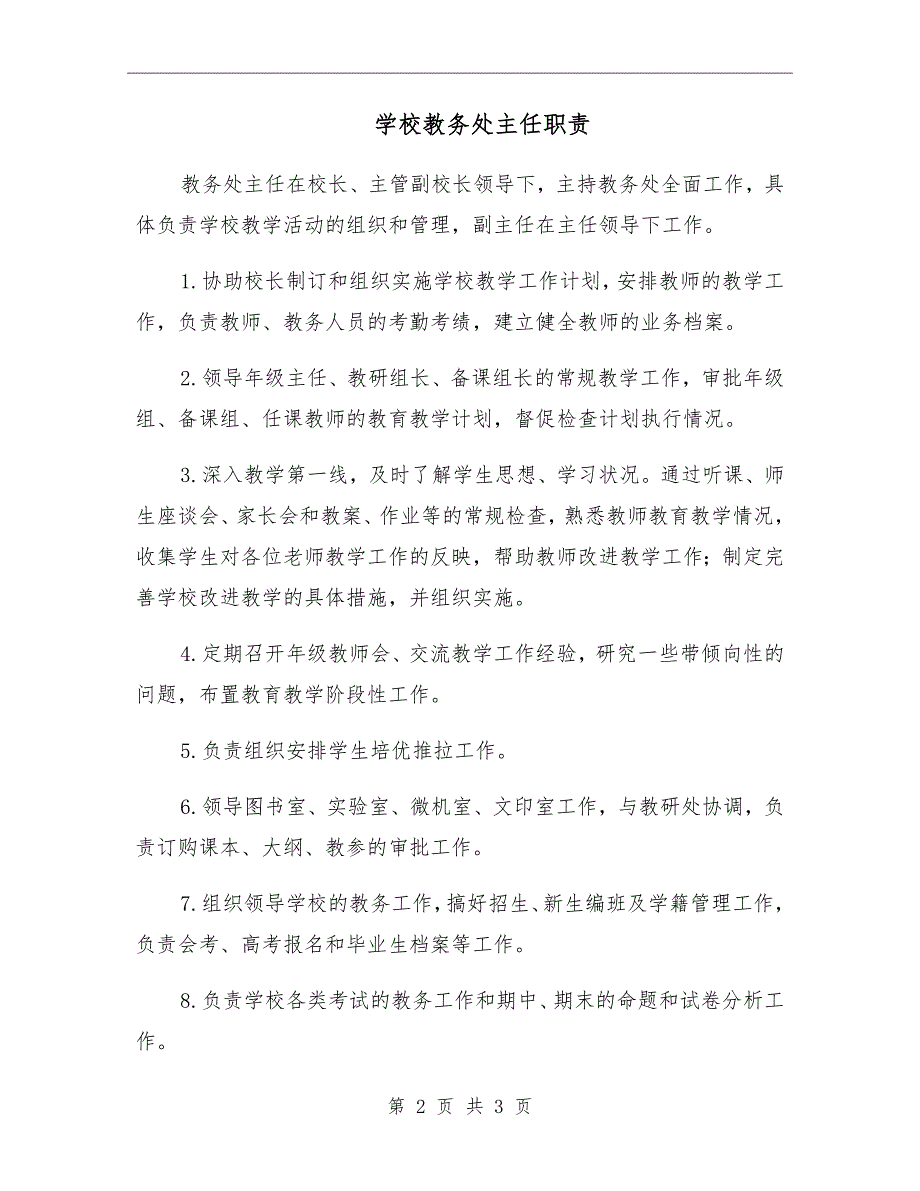 学校教务处主任职责
教务处主任在校长、主管副校长领导下，主持教务处全面工作，具
体负责学校教学活动的组织和管理，副主任在主任领导下工作。
1.协助校长制订和组织实施学校教学工作计划，安排教师的教学工
作，负责教师、教务人员的考勤考绩，建立健全教师的业务档案。
2.领导年级主任、教研组长、备课组长的常规教学工作，审批年级
组、备课组、任课教师的教育教学计划，督促检查计划执行情况。
3.深入教学第一线，及时了解学生思想、学习状况。通过听课、师
生座谈会、家长会和教案、作业等的常规检查，熟悉教师教育教学情况，
收集学生对各位老师教学工作的反映，帮助教师改进教学工作；制定完
善学校改进教学的具体措施，并组织实施。
4.定期召开年级教师会、交流教学工作经验，研究一些带倾向性的
问题，布置教育教学阶段性工作。
5.负责组织安排学生培优推拉工作。
6.领导图书室、实验室、微机室、文印室工作，与教研处协调，负
责订购课本、大纲、教参的审批工作。
7.组织领导学校的教务工作，搞好招生、新生编班及学籍管理工作，
负责会考、高考报名和毕业生档案等工作。
8.负责学校各类考试的教务工作和期中、期末的命题和试卷分析工
作。
第 2 页 共 3 页